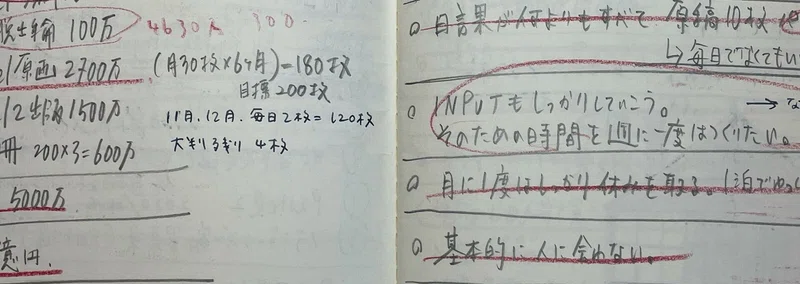 脱生輪 100万 4630人 300
原画 2700万 (月30枚×6ヶ月)=180枚
目標200枚
/2出版1500万
11月、12月、毎日2枚=120枚
冊 200×3=600万
大判残り 4枚
5000万
億円。
○ 目言果が何よりもすべて 原稿10枚
↳毎日でなくてもい
○ INPUTもしっかりしていこう。 → な
そのための時間を1週に一度はつくりたい。
○ 月に1度はしっかり休みを取る。1泊でゆっ
○ 基本的に人に会わない。